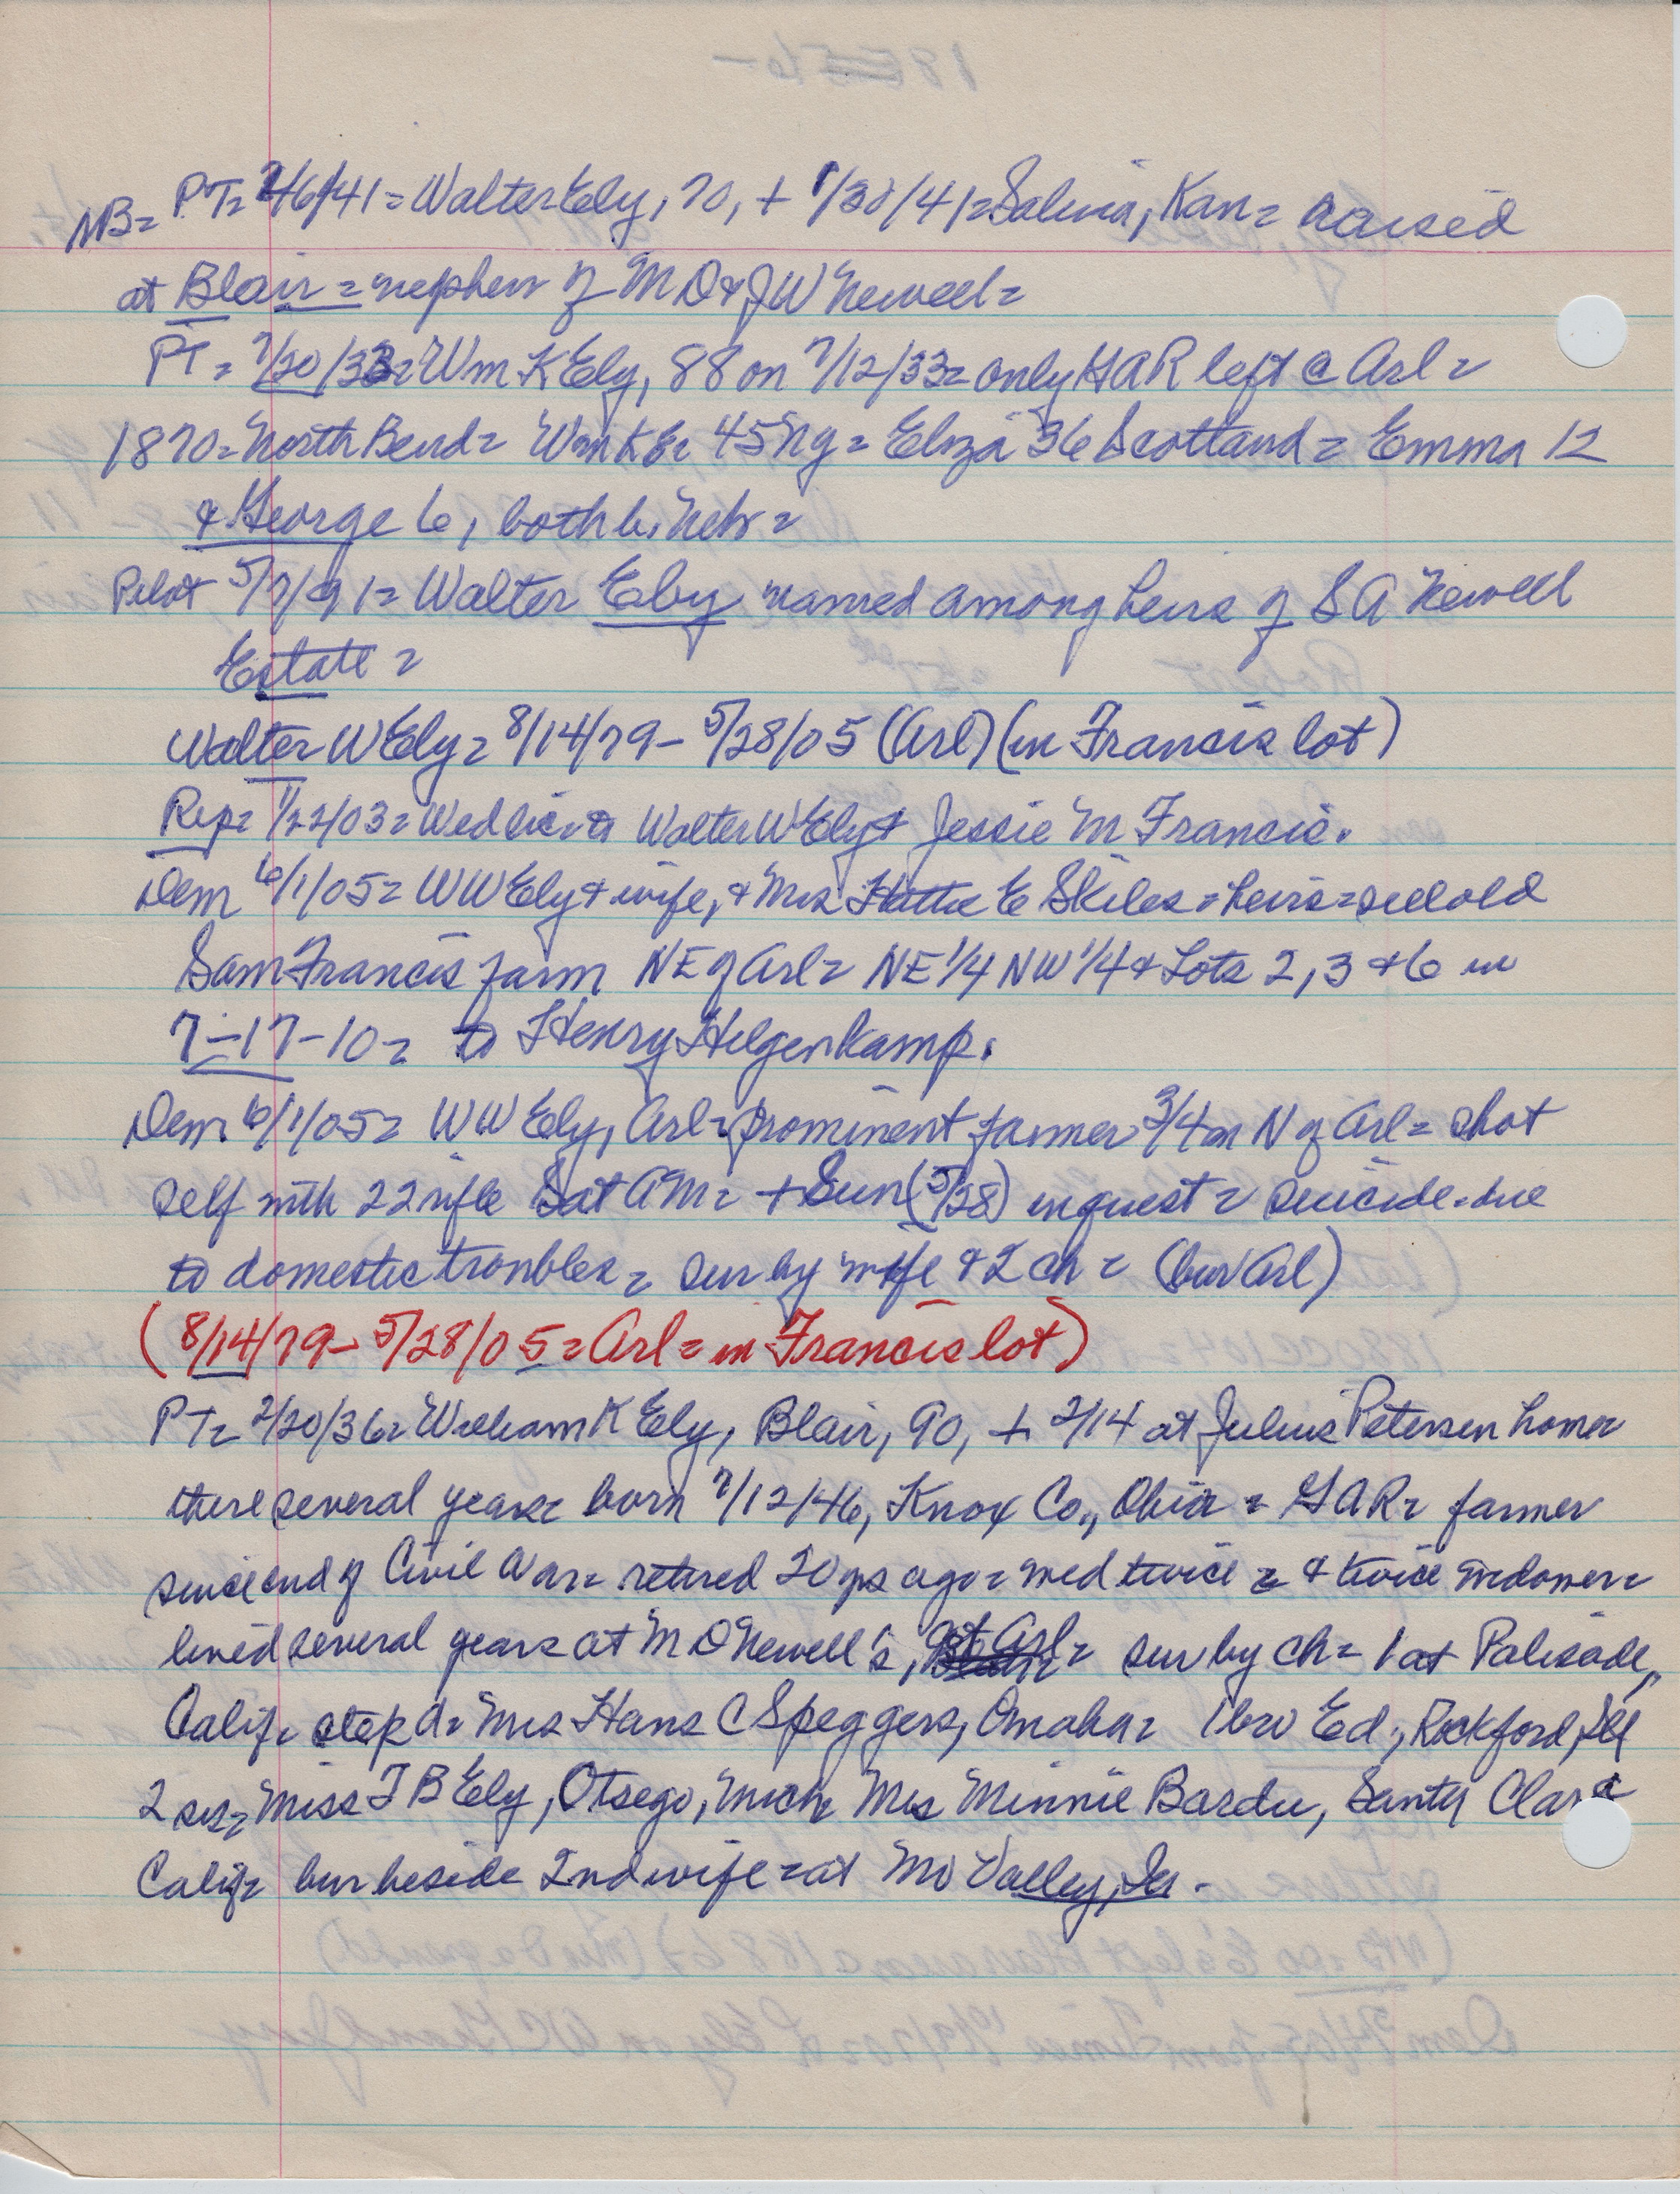 NB= PT= 2/6/41= Walter Ely, 70, + 1/30/41= Salina, Kan= raised
at Blair = nephew of M D & J W Newell=
PT = 7/20/33= Wm K Ely, 88 on 7/12/33= only GAR left @ Arl =
1870= North Bend= Wm K E= 45 Ny = Eliza 36 Scotland = Emma 12
& George 6, both b. Nebr =
Pilot 5/7/91= Walter Eby named among heirs of S A Newell
Estate =
Walter W Ely = 8/14/79 - 5/28/05 (Arl) (in Francis lot)
Rep= 1/22/03= Wed lic= to Walter W Ely & Jessie M Francis.
Dem 6/1/05= W W Ely & wife, & Mrs Hattie E Skiles = heirs = sell old
Sam Francis farm NE of Arl= NE 1/4 NW 1/4 & Lots 2, 3 & 6 in
7-17-10= to Henry Hilgenkamp.
Dem 6/1/05= W W Ely, Arl= prominent farmer 3/4 m N of Arl= shot
self with 22 rifle Sat AM= + Sun (5/28) inquest = suicide= due
to domestic troubles = sur by wife & 2 ch = (bur Arl)
(8/14/79 - 5/28/05 = Arl = in Francis lot)
PT= 2/20/36= William K Ely, Blair, 90, + 2/14 at Julius Petersen home=
there several years= born 7/12/46, Knox Co., Ohio = GAR= farmer
since end of Civil War= retired 20 yrs ago= med twice = & twice widower=
lived several years at M D Newell's, at Arl= sur by ch= 1 at Palisade,
Calif= step d= Mrs Hans C Speggers, Omaha= 1 bro Ed., Rockford, Ill
2 sis= Miss F B Ely, Otsego, Mich= Mrs Minnie Bardu, Santa Clara
Calif= bur beside 2nd wife = at Mo Valley, Ia.